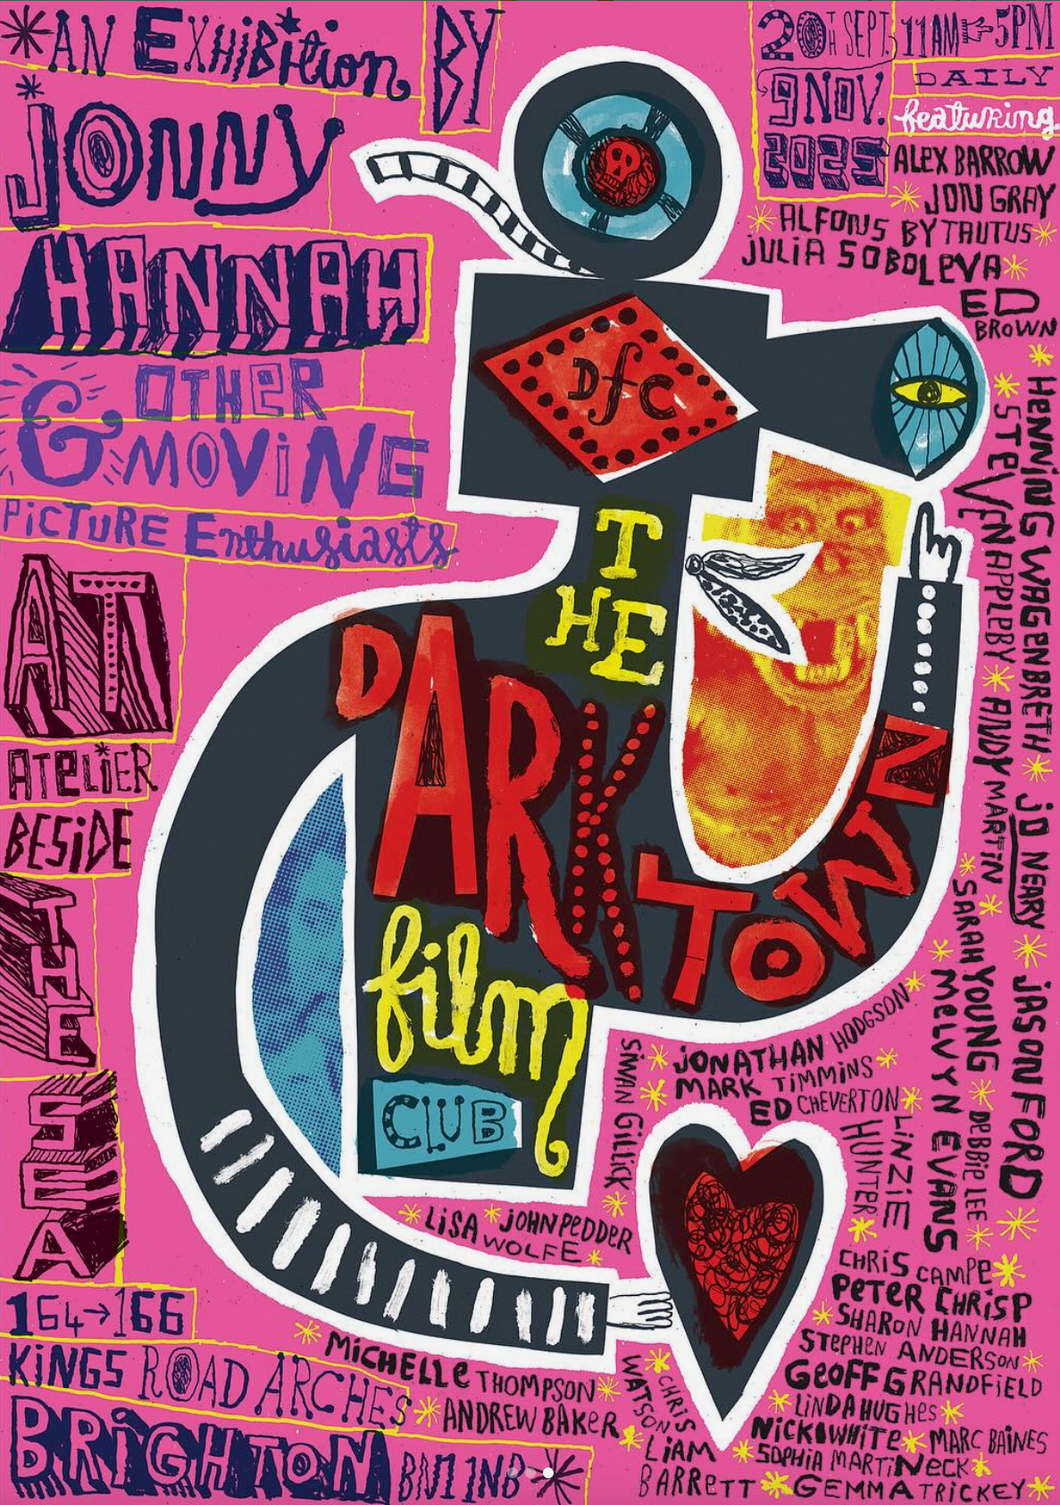 *AN EXHiBition BY
JONNY
HANNAH
& OTHER
MOViNG
PiCTURE Enthusiasts
AT
ATELiER
BESiDE
THE
SEA
164→166
KiNGS ROAD ARCHES
BRiGHTON BN1 1NB*
20th SEPT. 11AM 5PM
9 NOV. DAILY
2025
featuring
ALEX BARROW
* JON GRAY
* ALFONS BYTAUTUS *
JULIA SOBOLEVA *
ED
BROWN
* HENNiNG WAGENBRETH * JD NEARY * JASON FORD *
* STEVEN APPLEBY * ANDY MARTiN *
* SARAH YOUNG * DEBBIE LEE *
* MELVYN EVANS *
DfC
THE
DARKTOWN
film
CLUB
* JONATHAN HODGSON *
* MARK TIMMiNS *
ED CHEVERTON *
SiWAN GiLLiCK *
LiNZiE
HUNTER *
* LiSA WOLFE *
* JOHN PEDDER
CHRiS CAMPE *
PETER CHRiSP
* SHARON HANNAH
STEPHEN ANDERSON *
GEOFF GRANDFiELD
* LiNDA HUGHES *
NiCK WHiTE * MARC BAiNES
* SOPHiA MARTiNECK *
* GEMMA TRiCKEY *
* MiCHELLE THOMPSON *
* ANDREW BAKER *
* CHRiS
WATSON
LiAM
BARRETT